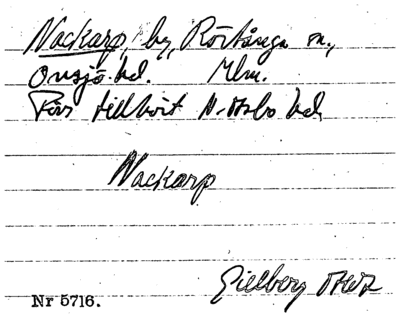 Nackarp, by, Röstånga sn,
Onsjö hd. Mlm.
Förr tillhört N. Åsbo hd.
Nackarp
Gillberg
Nr 5716.